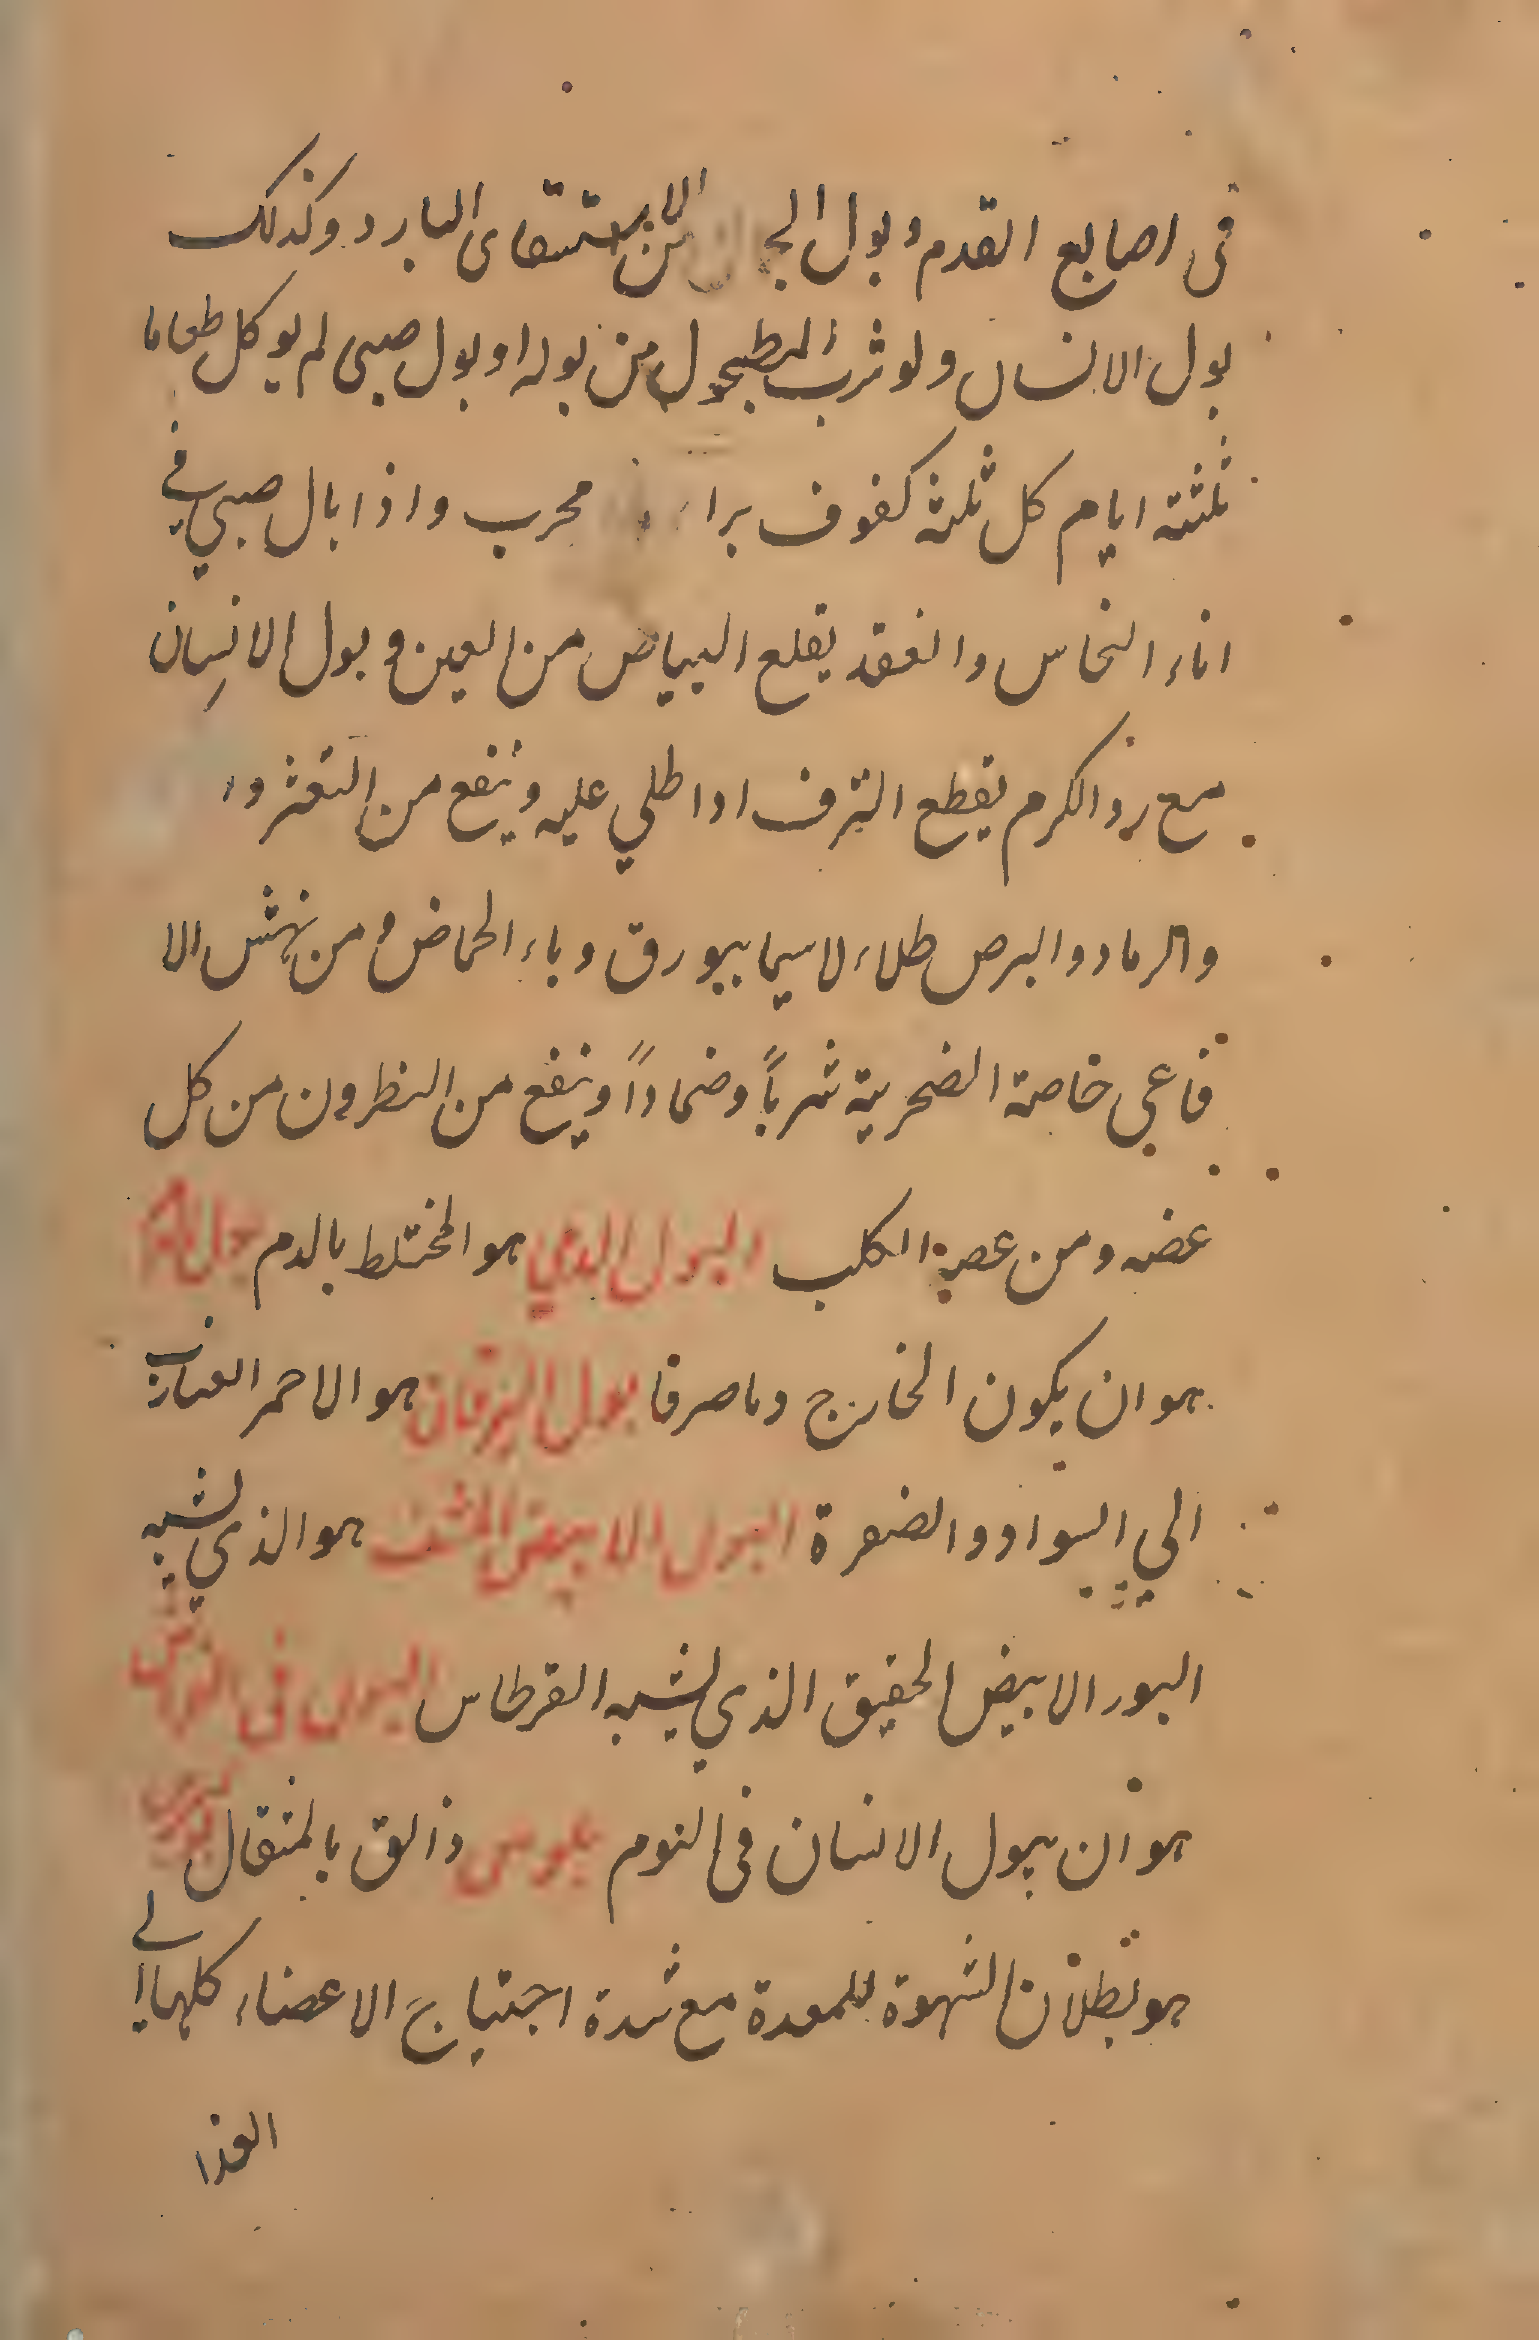 فى اصابع القدم وبول الجمال من الاستسقاى البارد وكذلك
بول الانسان ولو شرب المطحول من بوله او بول صبى لم يوكل طعاما
ثلثته ايام كل ثلثة كفوف محرب واذا بال صبي في
اناء النحاس وانعقد يقلع البياض من العين وبول الانسان
مع رماد الكرم يقطع النزف ادا طلي عليه وينفع من التقشر وا
والرماد والبرص طلاء لاسيما ببورق وباء الحماض ومن نهش الا
فاعى خاصة الضحرية شرباً وضماداً وينفع من النطرون من كل
عضه ومن عصة الكلب البول الدمي هو المختلط بالدم
هو ان يكون الخارج دما صرفا بول اليرقان هو الاحمر الضارب
الي السواد والصفرة البول الابيض المشف هو الذي يشبه
البور الابيض الحقيق الذي يشبه القرطاس البول فى الفراش
هو ان يبول الانسان فى النوم ذالق بالمثقال
هو بطلان الشهوة للمعدة مع شدة احتياج الاعضاء كلها الي
الغذا